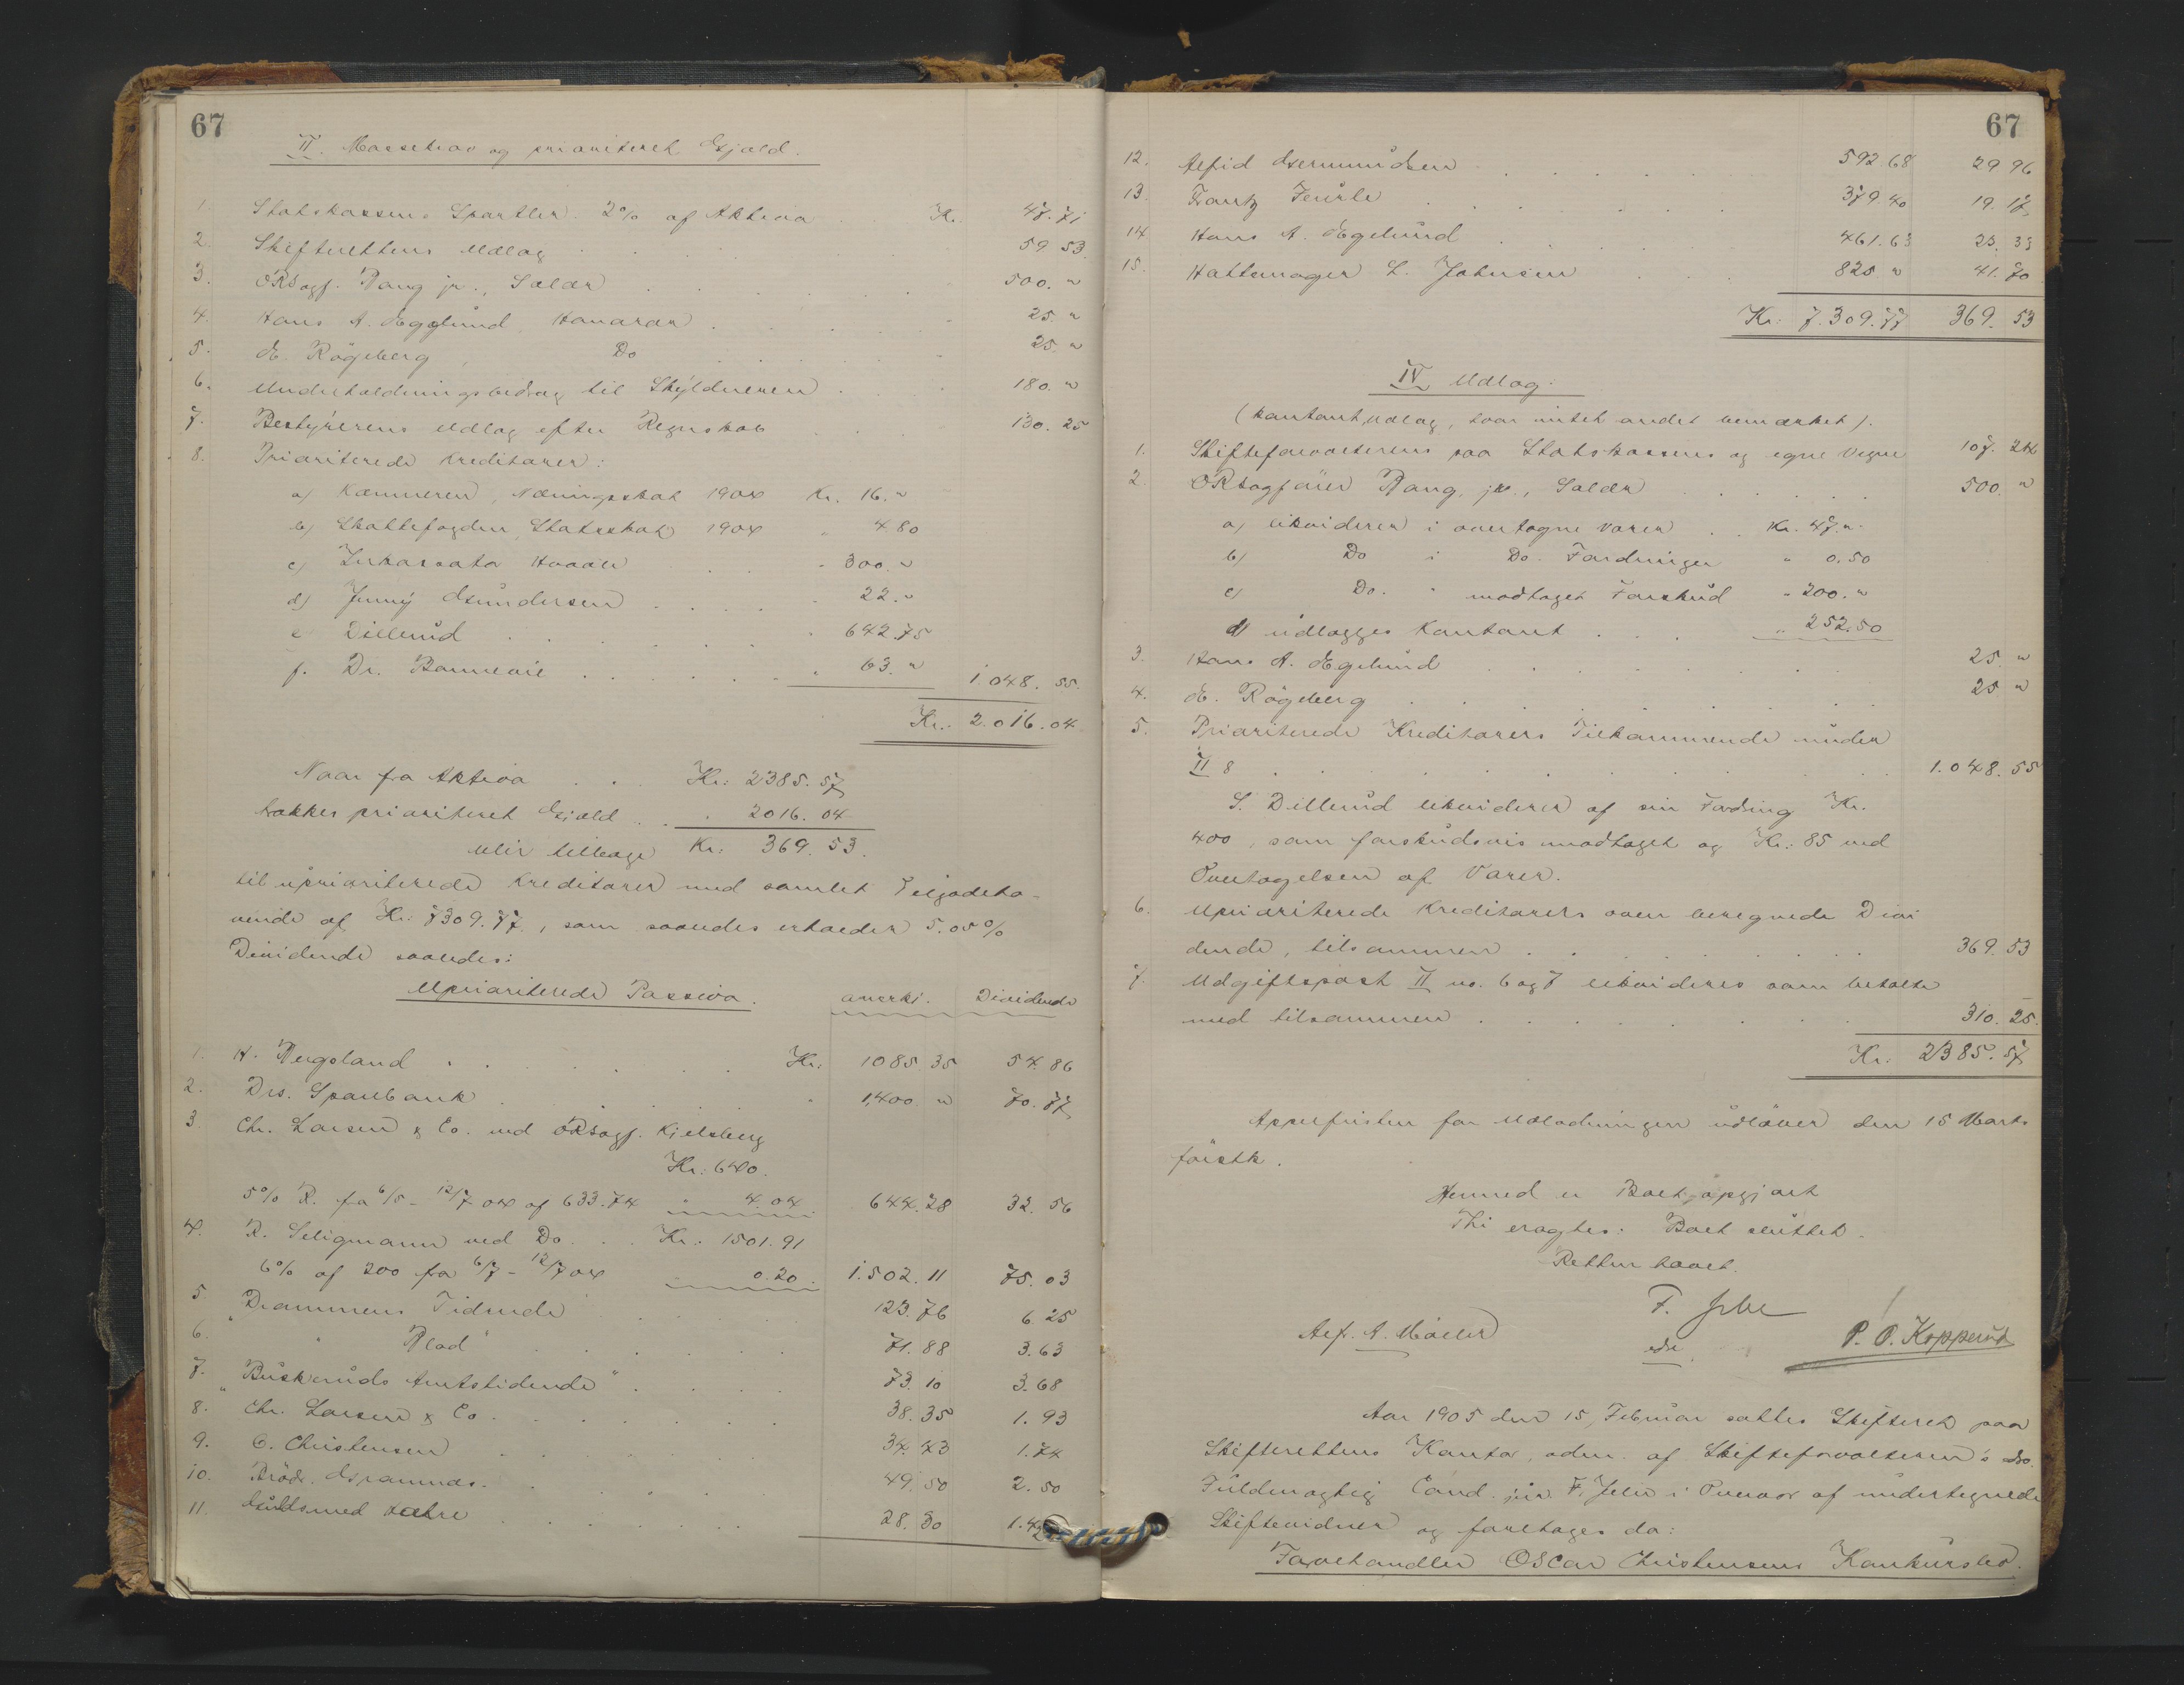 67
II. Massekrav og prioriteret Gjæld.
1. Statskassens Sportler 2% af Aktiva . . Kr. 47.71
2. Skifterettens Udlæg . . . 59 53.
3. ORSagf. Bang jr., Salær . . . 500. "
4. Hans A. Egelund, Honorar . . . 25. "
5. E. Rögeberg, Do . . . 25. "
6. Underholdningsbidrag til Skyldneren . . 180. "
7. Bestyrerens Udlæg efter Regnskab . . 130. 25
8. Prioriterede Kreditorer:
a) Kæmneren, Næringsskat 1904 Kr. 16. "
b) Skattefogden, Statsskat 1904 " 4 80
c) Inkassator Haave . . " 300. "
d) Jenny Gundersen . . " 22. "
e) Dillerud . . . " 642.75
f. Dr. Bonnevie . . . " 63. " 1048. 55.
Kr. 2.016.04
Naar fra Aktiva . . Kr: 2385.57
trækkes prioriteret Gjæld . . " 2016.04
blir tilbage Kr: 369.53.
til uprioriterede Kreditorer med samlet Tilgodeha-
vende af Kr: 7309.77., som saaledes erholder 5.05%
Dividende saaledes:
Uprioriterede Passiva. anerkj. Dividende
1. H. Bergsland . . . Kr: 1085 35 54.86
2. Drs. Sparebank . . . 1,400 " 70.77
3. Chr. Larsen & Co. ved ORSagf. Kjelsberg
Kr: 640.
5% R. fra 6/5 - 12/7 04 af 633.74 " 4.04 644.28 32.56
4. R. Seligmann ved Do . . Kr: 1501.91
6% af 200 fra 6/7 - 12/7 04 0.20. 1.502.11 75.03
5. "Drammens Tidende" . . . 123.76 6.25
6. " Blad" . . . 71.88 3.63
7. "Buskeruds Amtstidende" . . . 73.10 3.68
8. Chr. Larsen & Co. . . . 38.35 1.93
9. C. Christensen . . . 34.43 1.74
10. Brödr. . . . 49.50 2.50
11. Guldsmed Sæthre . . . 28.30 1.42
67
12. Alfid Gjermundsen . . . 592.68 29 96
13. Frantz . . . 379.40 19.17
14 Hans A. Egelund . . . 461.63 23.33
15. Hattemager L. Johnsen . . . 825 " 41.70
Kr: 7.309.77 369.53
IV Udlæg.
(kontant Udlæg, hvor intet andet bemærket).
1. Skifteforvalteren paa Statskassens og egne Vegne 107.24
2. ORSagförer Bang, jr., Salær . . . 500. "
a) likviderer i overtagne Varer . . Kr. 47. "
b) Do i Do. Fordringer " 0.50
c) Do. " modtaget Forskud " 200. "
d) udlægges Kontant . . . " 252.50
3. Hans A. Egelund . . . 25. "
4. E. Rögeberg . . . 25 "
5. Prioriterede Kreditorers Tilkommende under
II 8 . . . 1.048.55
S. Dillerud likviderer af sin Fordring Kr.
400, som forskudsvis modtaget og Kr: 85 ved
Overtagelsen af Varer.
6. Uprioriterede Kreditorers oven beregnede Divi
dende, tilsammen . . . 369.53
7. Udgiftspost II no. 6 og 7 likvideres som betalte
med tilsammen . . . 310.25.
Kr: 2385.57
Appelfristen for Udlodningen udløber den 15 Marts
förstk.
Hermed er Boet opgjort
Thi eragtes: Boet sluttet.
Retten hævet.
F.
edsv.
Alf. A. Möller
P. O. Kopperud
Aar 1905 den 15 Februar sattes Skifteret paa
Skifterettens Kontor, adm. af Skifteforvalterens eds.
Fuldmægtig Cand. jur. F. i Overvær af undertegnede
Skiftevidner og foretoges da:
Farvehandler Oscar Christensens Konkursbo.